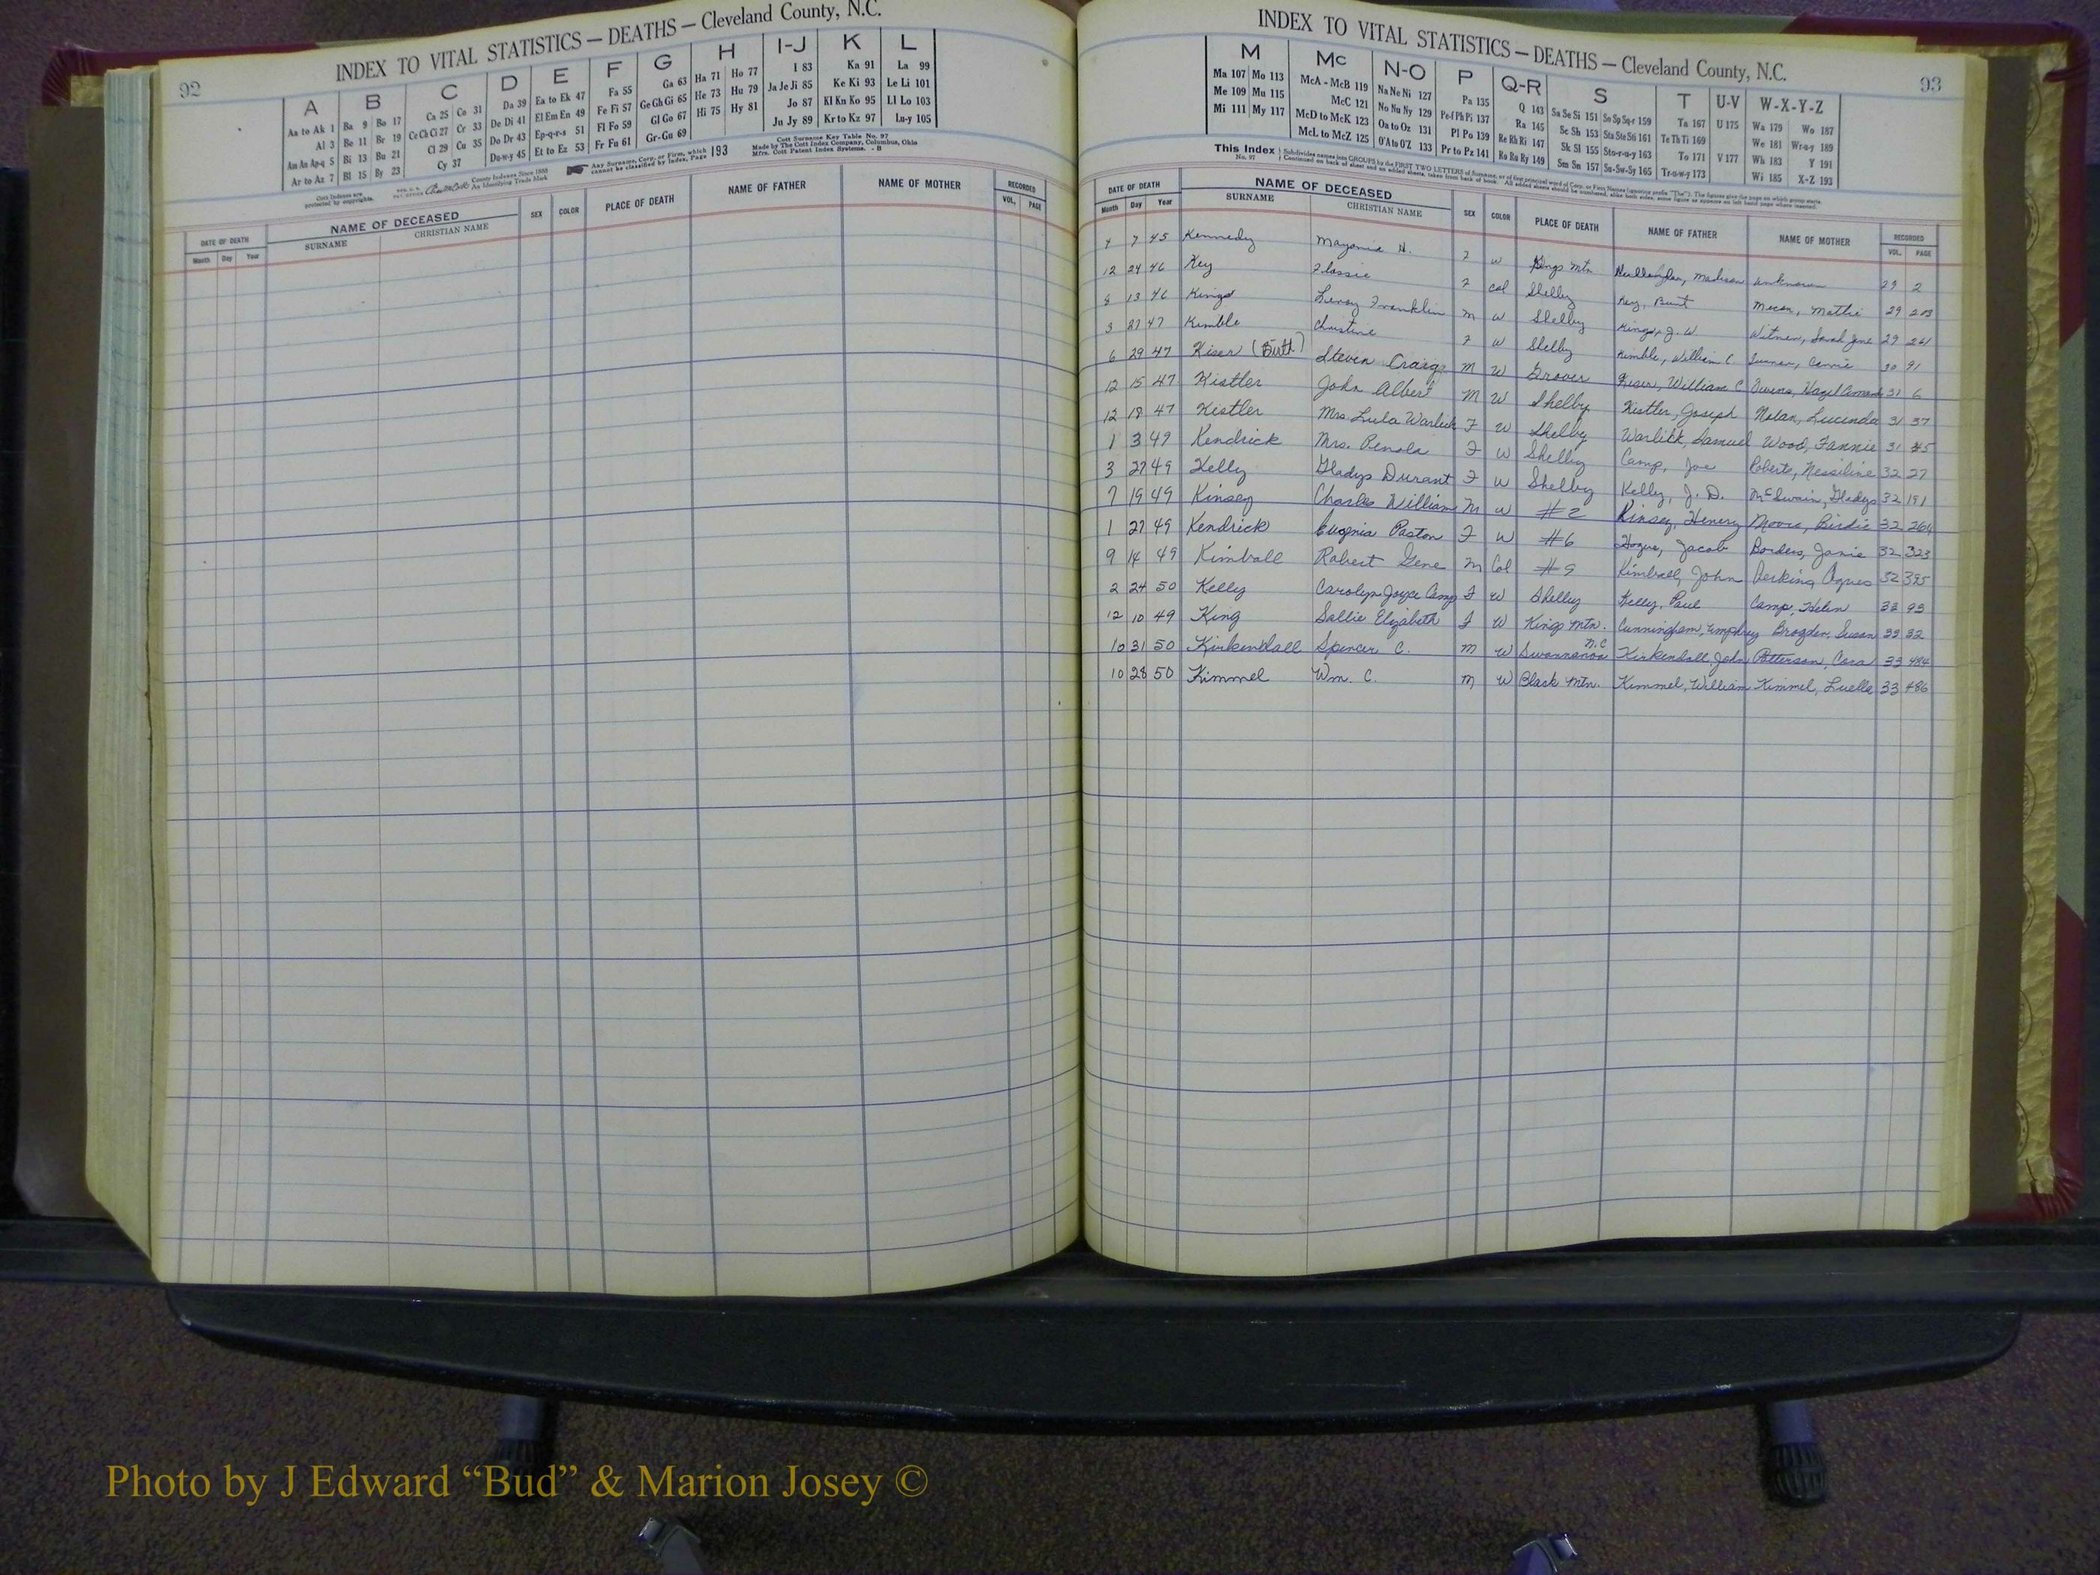 92
INDEX TO VITAL STATISTICS — DEATHS — Cleveland County, N.C.
A B C D E F G H I-J K L
Aa to Ak 1 Ba 9 Bo 17 Ca 25 Co 31 Da 39 Ea to Ek 47 Fa 55 Ga 63 Ha 71 Ho 77 I 83 Ka 91 La 99
Al 3 Be 11 Br 19 Ce Ch Ci 27 Cr 33 De Di 41 El Em En 49 Fe Fi 57 Ge Gh Gi 65 He 73 Hu 79 Ja Je Ji 85 Ke Ki 93 Le Li 101
Am An Ap-q 5 Bi 13 Bu 21 Cl 29 Cu 35 Do Dr 43 Ep-q-r-s 51 Fl Fo 59 Gl Go 67 Hi 75 Hy 81 Jo 87 Kl Kn Ko 95 Ll Lo 103
Ar to Az 7 Bl 15 By 23 Cy 37 Du-w-y 45 Et to Ez 53 Fr Fu 61 Gr-Gu 69 Ju Jy 89 Kr to Kz 97 Lu-y 105
Cott Indexes are protected by copyrights.
County Indexes Since 1888
An Identifying Trade Mark
Any Surname, Corp. or Firm, which cannot be classified by Index, Page 193
Cott Surname Key Table No. 97
Made by The Cott Index Company, Columbus, Ohio
Mfrs. Cott Patent Index Systems. - B
DATE OF DEATH NAME OF DECEASED SEX COLOR PLACE OF DEATH NAME OF FATHER NAME OF MOTHER RECORDED
Month Day Year SURNAME CHRISTIAN NAME VOL. PAGE
INDEX TO VITAL STATISTICS — DEATHS — Cleveland County, N.C.
93
M Mc N-O P Q-R S T U-V W-X-Y-Z
Ma 107 Mo 113 McA - McB 119 Na Ne Ni 127 Pa 135 Q 143 Sa Se Si 151 So Sp Sq-r 159 Ta 167 U 175 Wa 179 Wo 187
Me 109 Mu 115 McC 121 No Nu Ny 129 Pe-f Ph Pi 137 Ra 145 Sc Sh 153 Sta Ste Sti 161 Te Th Ti 169 We 181 Wr-u-y 189
Mi 111 My 117 McD to McK 123 Oa to Oz 131 Pl Po 139 Re Rh Ri 147 Sk Sl 155 Sto-r-u-y 163 To 171 V 177 Wh 183 Y 191
McL to McZ 125 O'A to O'Z 133 Pr to Pz 141 Ro Ru Ry 149 Sm Sn 157 Su-Sw-Sy 165 Tr-u-w-y 173 Wi 185 X-Z 193
This Index No. 97 Subdivides names into GROUPS by the FIRST TWO LETTERS of Surname, or of first principal word of Corp. or Firm Names (ignoring prefix "The"). The figures give the page on which group starts.
Continued on back of sheet and on added sheets, taken from back of book. All added sheets should be numbered, alike both sides, same figure as appears on left hand page where inserted.
DATE OF DEATH NAME OF DECEASED SEX COLOR PLACE OF DEATH NAME OF FATHER NAME OF MOTHER RECORDED
Month Day Year SURNAME CHRISTIAN NAME VOL. PAGE
7 45 Kennedy H. F W Kings Mtn Madison Unknown 29 2
12 24 46 Key Flossie F Col Shelby Key, Burt Mattie 29 203
8 13 46 Leroy Franklin M W Shelby J. W. Sarah Jane 29 261
3 27 47 Kimble Christine F W Shelby Kimble, William C. Carrie 30 91
6 29 47 Kiser (Birth) Steven Craig M W Grover Kiser, William C Owens, Hazel 31 6
12 15 47 Kistler John Albert M W Shelby Kistler, Joseph Nolan, Lucinda 31 37
12 18 47 Kistler Mrs. Lula Warlick F W Shelby Warlick, Samuel Wood, Fannie 31 45
1 3 49 Kendrick Mrs. Renola F W Shelby Camp, Joe Roberts, Nessiline 32 27
3 27 49 Kelly Gladys Durant F W Shelby Kelly, J. D. McSwain, Gladys 32 191
7 19 49 Kinsey Charles William M W #2 Kinsey, Henery Moore, Birdie 32 264
1 27 49 Kendrick Eugenia Paston F W #6 Hogue, Jacob Borders, Janie 32 323
9 14 49 Kimball Robert Gene M Col #9 Kimball, John Perkins, Agnes 32 395
2 24 50 Kelly Carolyn Joyce Camp F W Shelby Kelly, Paul Camp, Helen 33 93
12 10 49 King Sallie Elizabeth F W Kings Mtn. Cunningham, Umphrey Brogden, Susan 33 32
10 31 50 Kirkendall Spencer C. M W Swannanoa N.C Kirkendall, John Patterson, Cora 33 484
10 28 50 Kimmel Wm. C. M W Black Mtn. Kimmel, William Kimmel, Luella 33 486
Photo by J Edward “Bud” & Marion Josey ©